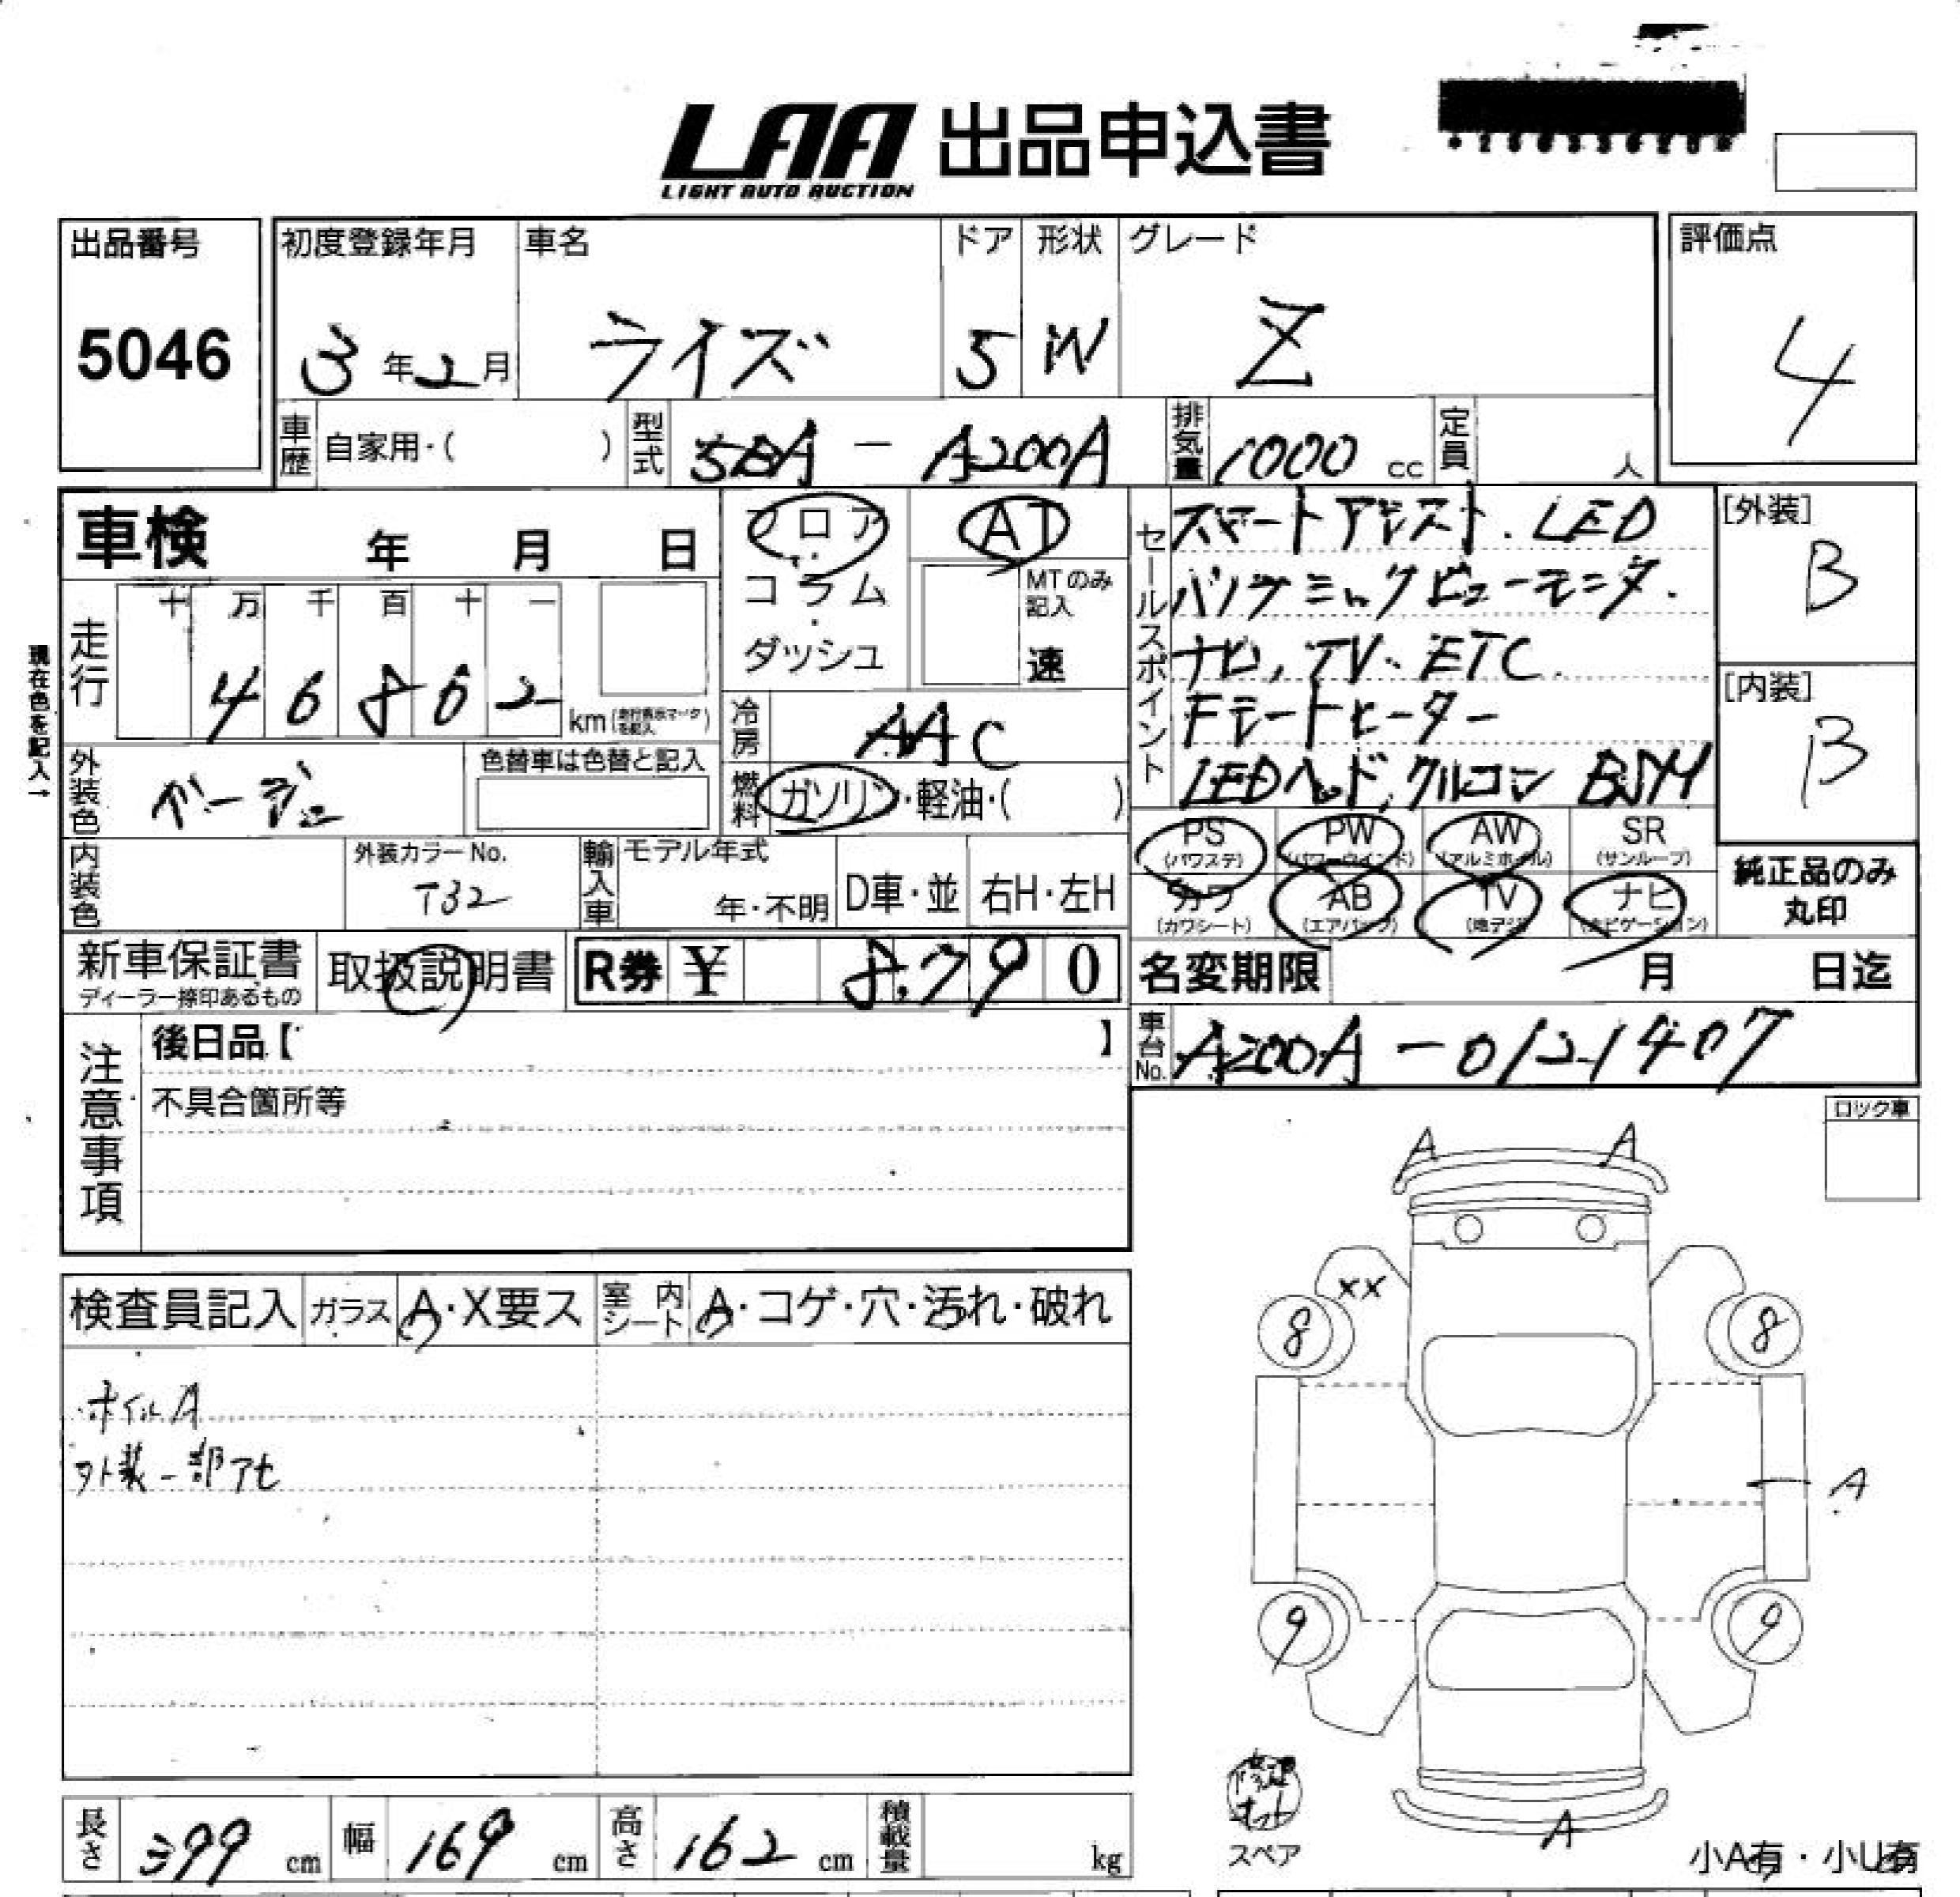 LAA 出品申込書
LIGHT AUTO AUCTION
出品番号
5046
初度登録年月
3年2月
車名
ライズ
ドア
5
形状
W
グレード
Z
評価点
4
車歴 自家用・( )
型式 5BA - A200A
排気量 1000 cc
定員 人
車検 年 月 日
フロア
コラム
ダッシュ
AT
MTのみ記入
速
セールスポイント
スマートアシスト. LED
パノラミックビューモニター.
ナビ, TV、ETC.
Fシートヒーター
LEDヘッド, クルコン BSM
[外装]
B
[内装]
B
現在色を記入→
走行
十 万 千 百 十 一
4 6 8 6 2
km (走行表示マークを記入)
冷房 AAC
燃料 ガソリン・軽油・( )
外装色 ベージュ
色替車は色替と記入
内装色
外装カラーNo.
T32
輸入車
モデル年式
年・不明
D車・並
右H・左H
PS (パワステ)
PW (パワーウインド)
AW (アルミホイル)
SR (サンルーフ)
カワ (カワシート)
AB (エアバッグ)
TV (地デジ)
ナビ (ナビゲーション)
純正品のみ
丸印
新車保証書
ディーラー捺印あるもの
取扱説明書
R券 ¥ 8,790
名変期限 月 日迄
車台No. A200A-0121407
注意事項
後日品【 】
不具合箇所等
ロック車
A A
XX
8 8
A
9 9
A
検査員記入
ガラス A・X要ス
室内シート A・コゲ・穴・汚れ・破れ
ホイルA
外装一部アセ
修理キット
スペア
小A有・小U有
長さ 399 cm
幅 169 cm
高さ 162 cm
積載量 kg